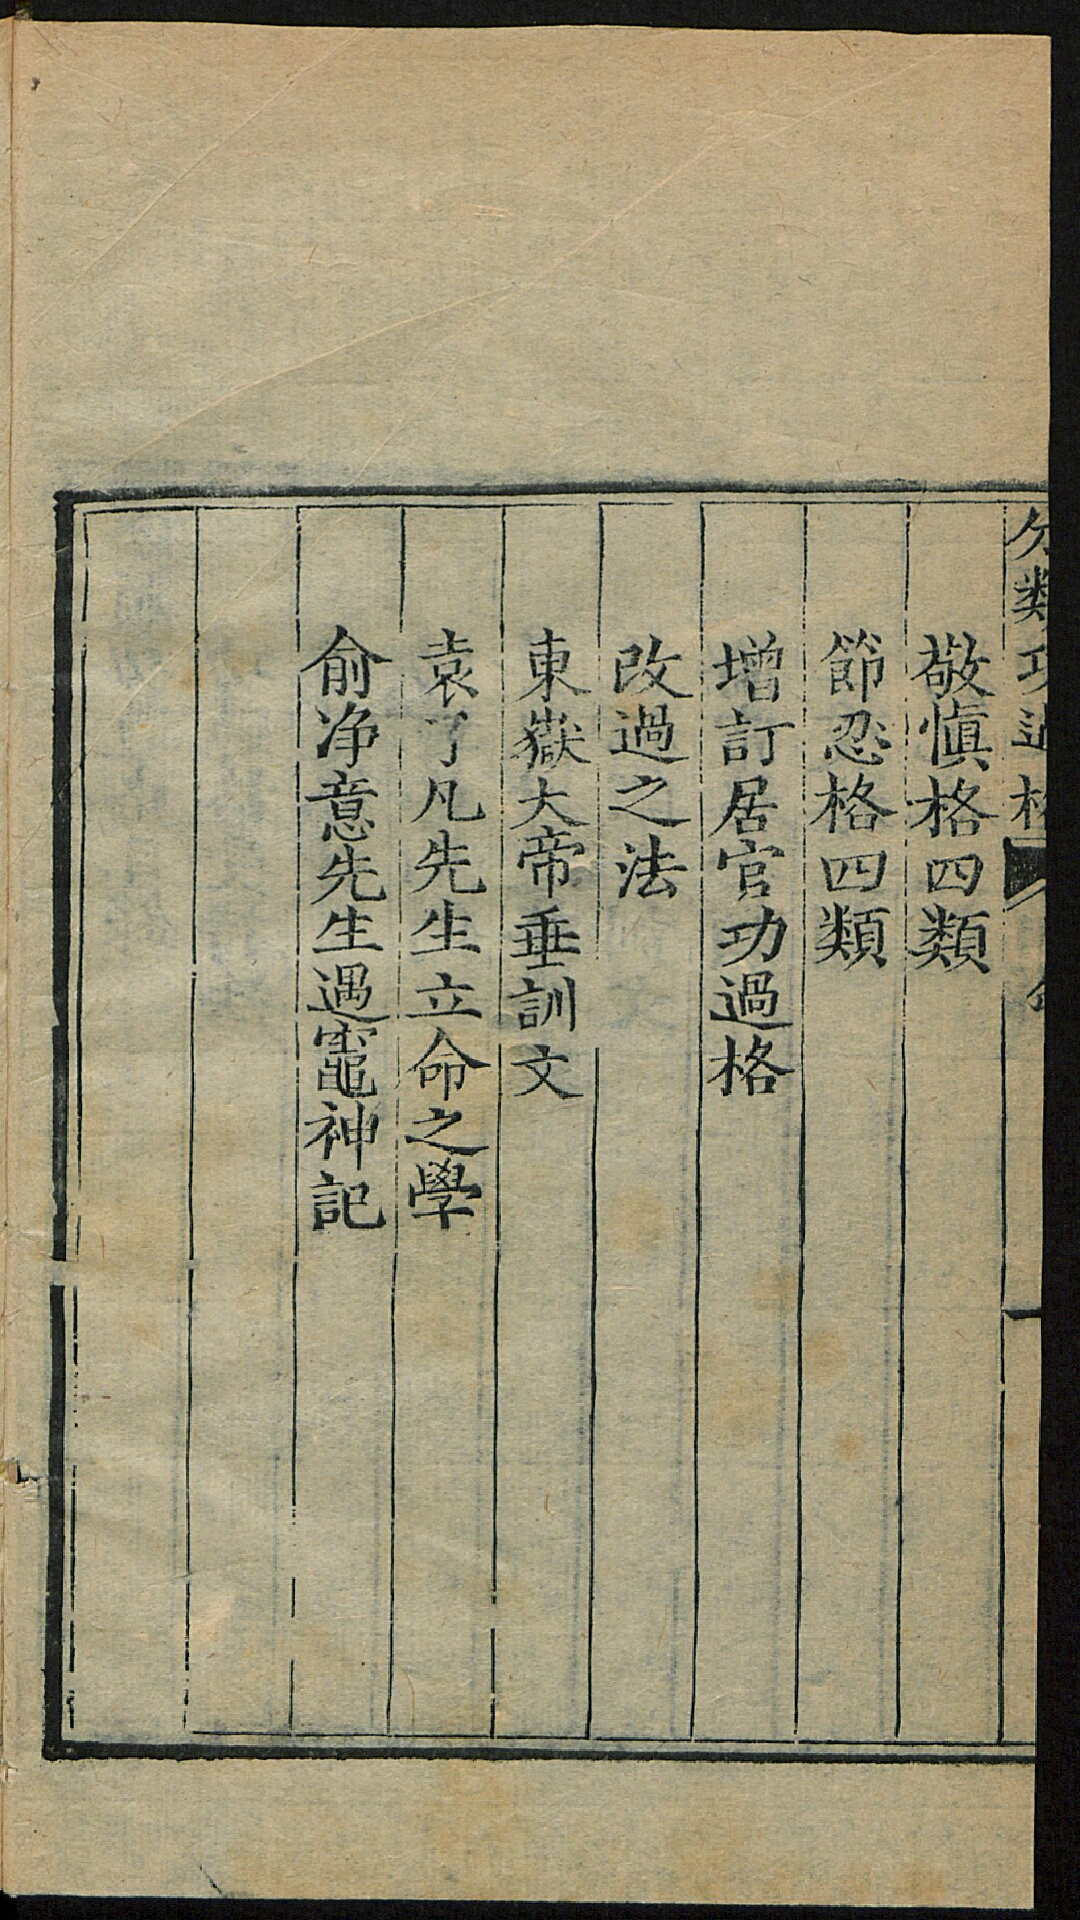 分類功過格
敬慎格四類
節忍格四類
增訂居官功過格
改過之法
東嶽大帝垂訓文
袁了凡先生立命之學
俞净意先生遇竈神記